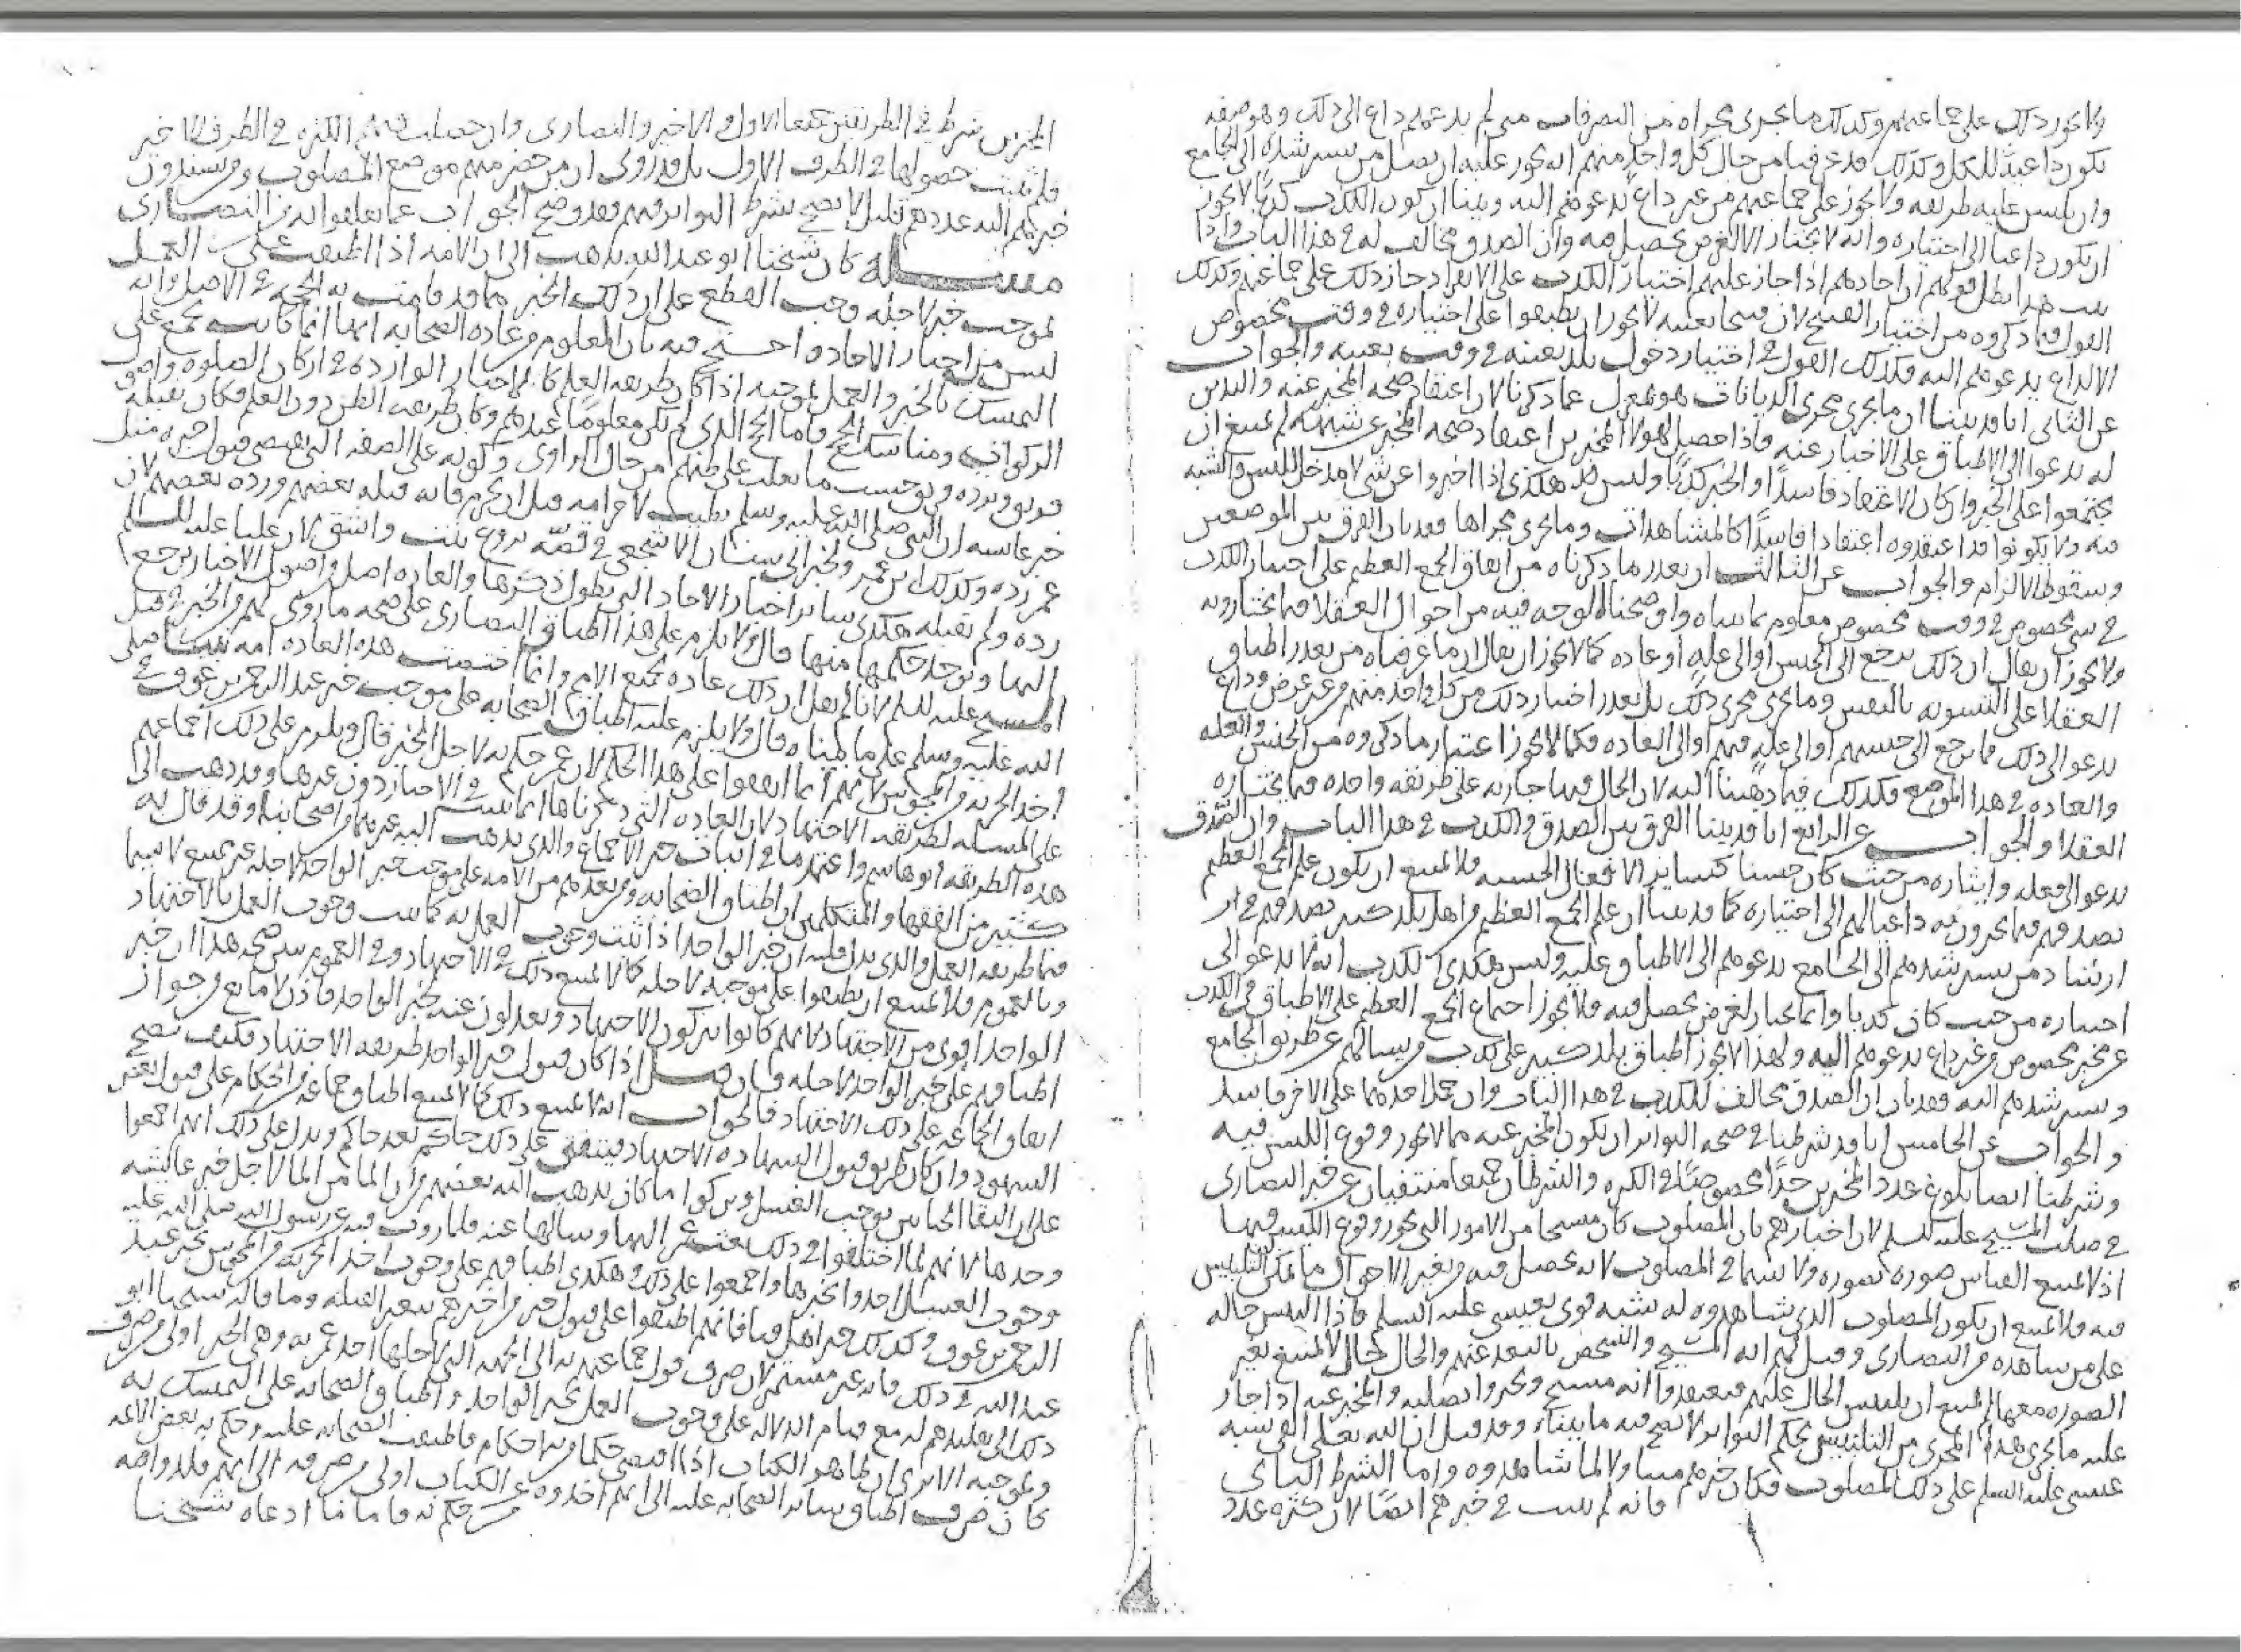 ولا يجوز ذلك على جماعتهم وكذلك ما يجري مجراه من التصرفات متى لم يدعهم داع الى ذلك وهو صفه
يكون داعية للكل وكذلك قد عرفنا من حال كل واحد منهم انه يجوز عليه ان يضل من يسترشده الى الجامع
وان يلبس عليه طريقه ولا يجوز على جماعتهم من غير داع يدعوهم اليه وبينا ان كون الكذب كذبا لا يجوز
ان يكون داعيا الى اختياره وانه لا يختار الا لغرض يحصل فيه وان الصدق مخالف له في هذا الباب واذا
ثبت هذا بطل قولهم ان احادهم اذا جاز عليهم اختيار الكذب على الانفراد جاز ذلك على جماعتهم وكذلك
القول فيما ذكروه من اختيار القبيح لان قبيحا بعينه لا يجوز ان يطبقوا على اختياره في وقت مخصوص
الا لداع يدعوهم اليه فكذلك القول في اختيار دخول بلد بعينه في وقت بعينه والجواب
عن الثاني انا قد بينا ان ما يجري مجرى الديانات هو بمعزل عما ذكرنا لان اعتقاد صحه المخبر عنه والتدين
له يدعوا الى الاطباق على الاخبار عنه فاذا حصل لهولا المخبرين اعتقاد صحه المخبر عن شبهة لم يمتنع ان
يجتمعوا على الخبر وان كان الاعتقاد فاسدا والخبر كذبا وليس هكذى اذا اخبروا عن شي لا مدخل للبس والشبه
فيه ولا يكونوا قد اعتقدوه اعتقادا فاسدا كالمشاهدات وما يجري مجراها فقد بان الفرق بين الموضعين
وسقوط الالزام والجواب عن الثالث ان تعذر ما ذكرناه من اتفاق الجمع العظيم على اختيار الكذب
في شي مخصوص في وقت مخصوص معلوم بما بيناه واوضحنا الوجه فيه من احوال العقلا فيما يختارونه
ولا يجوز ان يقال ان ذلك يرجع الى الجنس او الى عله او عاده كما لا يجوز ان يقال ان ما عرفناه من تعذر اطباق
العقلا على التشويه بالنفس وما يجري مجرى ذلك بل تعذر اختيار ذلك من كل واحد منهم من غير غرض وداع
يدعوا الى ذلك مما يرجع الى جنسهم او الى عله فيهم او الى العاده فكما لا يجوز اعتبار ما ذكروه من الجنس والعله
والعاده في هذا الموضع فكذلك فيما ذهبنا اليه لان الحال فيها جاريه على طريقه واحده فيما يختاره
العقلا والجواب عن الرابع انا قد بينا الفرق بين الصدق والكذب في هذا الباب وان الصدق
يدعو الى فعله وايثاره من حيث كان حسنا كساير الافعال الحسنه فلا يمتنع ان يكون علم الجمع العظيم
بصدقهم فيما يخبرون به داعيا لهم الى اختياره كما قد بينا ان علم الجمع العظيم من اهل بلد كبير بصدقهم في ان
ارشاد من يسترشدهم الى الجامع يدعوهم الى الاطباق عليه وليس هكذى الكذب لانه لا يدعو الى
اختياره من حيث كان كذبا وانما يختار لغرض يحصل فيه فلا يجوز اجتماع الجمع العظيم على الاطباق في الكذب
عن مخبر مخصوص من غير داع يدعوهم اليه ولهذا لا يجوز اطباق بلد كبير على كذب من يسالهم عن طريق الجامع
ويسترشدهم اليه فقد بان ان الصدق مخالف للكذب في هذا الباب وان حمل احدهما على الاخر فاسد
والجواب عن الخامس انا قد شرطنا في صحه التواتر ان يكون المخبر عنه مما لا يجوز وقوع اللبس فيه
وشرطنا ايضا بلوغ عدد المخبرين حدا مخصوصا في الكثره والشرطان جميعا منتفيان عن خبر النصارى
في صلب المسيح عليه السلم لان اخبارهم بان المصلوب كان مسيحا من الامور التي يجوز وقوع اللبس فيها
اذ لا يمتنع التباس صوره بصوره ولا سيما في المصلوب لانه يحصل فيه من تغير الاحوال ما يمكن التلبيس
فيه فلا يمتنع ان يكون المصلوب الذي شاهدوه له شبه قوي بعيسى عليه السلم فاذا التبس حاله
على من شاهده من النصارى وقيل لهم انه المسيح والشخص بالبعد عنهم والحال حال لا يمتنع تغير
الصوره معها لم يمتنع ان يلتبس الحال عليهم فيعتقدوا انه مسيح ويخبروا بصلبه والمخبر عنه اذا جاز
عليه ما يجري هذا المجرى من التلبيس فحكم التواتر لا يصح فيه ما بيناه وقد قيل ان الله تعلى القى شبه
عيسى عليه السلم على ذلك المصلوب فكان خبرهم مبنيا ولا لما شاهدوه واما الشرط الثاني
فانه لم يثبت في خبرهم ايضا لان كثره عدد
المخبرين شرط في الطرفين جميعا الاول والاخير والنصارى وان حصلت فيهم الكثره في الطرف الاخير
فلم يثبت حصولها في الطرف الاول بل قد روى ان من حضر منهم موضع المصلوب ومن يسندون
خبرهم اليه عددهم قليل لا يصح شرط التواتر فيهم فقد وضح الجواب عما تعلقوا به من النصارى
مسله كان شيخنا ابو عبد الله يذهب الى ان الامه اذا اطبقت على العمل
بموجب خبر لاجله وجب القطع على ان ذلك الخبر مما قد قامت به الحجه في الاصل وانه
ليس من اخبار الاحاد واحتج فيه بان المعلوم من عاده الصحابه انها انما كانت تجمع على
التمسك بالخبر والعمل بموجبه اذا كان طريقه العلم كالاخبار الوارده في اركان الصلوه واصول
الزكوات ومناسك الحج فاما الخبر الذي لم يكن معلوما عندهم وكان طريقه الظن دون العلم فكان يقبله
فريق ويرده فريق بحسب ما يغلب على ظنهم من حال الراوي وكونه على الصفه التي يقتضي قبول خبره مثل
خبر عايشه ان النبي صلى الله عليه وسلم تطيب لاحرامه قبل ان يحرم فانه قبله بعضهم ورده بعضهم لان
عمر رده وكذلك ابن عمر وكخبر ابي سنان الاشجعي في قصه بروع بنت واشق لان عليا عليه السلم
رده ولم يقبله هكذى ساير اخبار الاحاد التي يطول ذكرها والعاده اصل واصول الاخبار يرجع
اليها ويوخذ حكمها منها قال ولا يلزم على هذا اطباق النصارى على صحه ما روى لهم من الخبر في قتل
المسيح عليه السلم لانا لم نقل ان ذلك عاده جميع الامم وانما اختصت هذه العاده امه نبينا صلى
الله عليه وسلم على ما بيناه قال ولا يلزم عليه اطباق الصحابه على موجب خبر عبد الرحمن بن عوف في
اخذ الجزيه من المجوس لانهم انما اتفقوا على هذا الحكم لان عمر حكم به لاجل الخبر قال ويلزم على ذلك اجماعهم
على المسله لطريقه الاجتهاد لان العاده التي ذكرناها انما تثبت في الاخبار دون غيرها وقد ذهب الى
هذه الطريقه ابو هاشم واعتمدها في اثبات خبر الاجماع والذي يذهب اليه غيرهما من اصحابنا وقد قال به
كثير من الفقها والمتكلمين ان اطباق الصحابه ومن بعدهم من الامه على موجب خبر الواحد لاجله غير ممتنع لا سيما
فيما طريقه العمل والذي يدل عليه ان خبر الواحد اذا ثبت وجوب العمل به كما ثبت وجوب العمل بالاجتهاد
وبالعموم فلا يمتنع ان يطبقوا على موجبه لاجله كما لا يمتنع ذلك في الاجتهاد وفي العموم يبين صحه هذا ان خبر
الواحد اقوى من الاجتهاد لانهم كانوا يتركون الاجتهاد ويعدلون عنه بخبر الواحد فاذن لا مانع من جواز
اطباقهم على خبر الواحد لاجله فان قيل اذا كان قبول خبر الواحد طريقه الاجتهاد فكيف يصح
اتفاق الجماعه على ذلك الاجتهاد فالجواب انه لا يمتنع ذلك كما لا يمتنع اطباق جماعه من الحكام على قبول بعض
الشهود وان كان طريق قبول الشهاده الاجتهاد فيتفق على ذلك حاكم بعد حاكم ويدل على ذلك انهم اجمعوا
على ان التقا الختانين يوجب الغسل وتركوا ما كان يذهب اليه بعضهم من ان الما من الما لاجل خبر عايشه
وحدها لانهم لما اختلفوا في ذلك بعث عمر اليها وسالها عنه فلما روت فيه عن رسول الله صلى الله عليه
وجوب الغسل اخذوا بخبرها واجمعوا على ذلك وهكذى اطباقهم على وجوب اخذ الجزيه من المجوس بخبر عبد
الرحمن بن عوف وكذلك خبر اهل قبا فانهم اطبقوا على قبول خبر من اخبرهم بتغير القبله وما قاله شيخنا ابو
عبد الله في ذلك فانه غير مستمر لان صرف قول جماعتهم به الى الجهه التي لاجلها اخذ عمر به وهي الخبر اولى من صرف
ذلك الى تقليدهم له مع قيام الدلاله على وجوب العمل بخبر الواحد واطباق الصحابه على التمسك به
وبموجبه الا ترى ان ظاهر الكتاب اذا اقتضى حكما من الاحكام فاطبقت الصحابه عليه وحكم به بعض الايمه
كان صرف اطباق ساير الصحابه عليه الى انهم اخذوه عن الكتاب اولى من صرفه الى انهم قلدوا فيه
من حكم به فاما ما ادعاه شيخنا